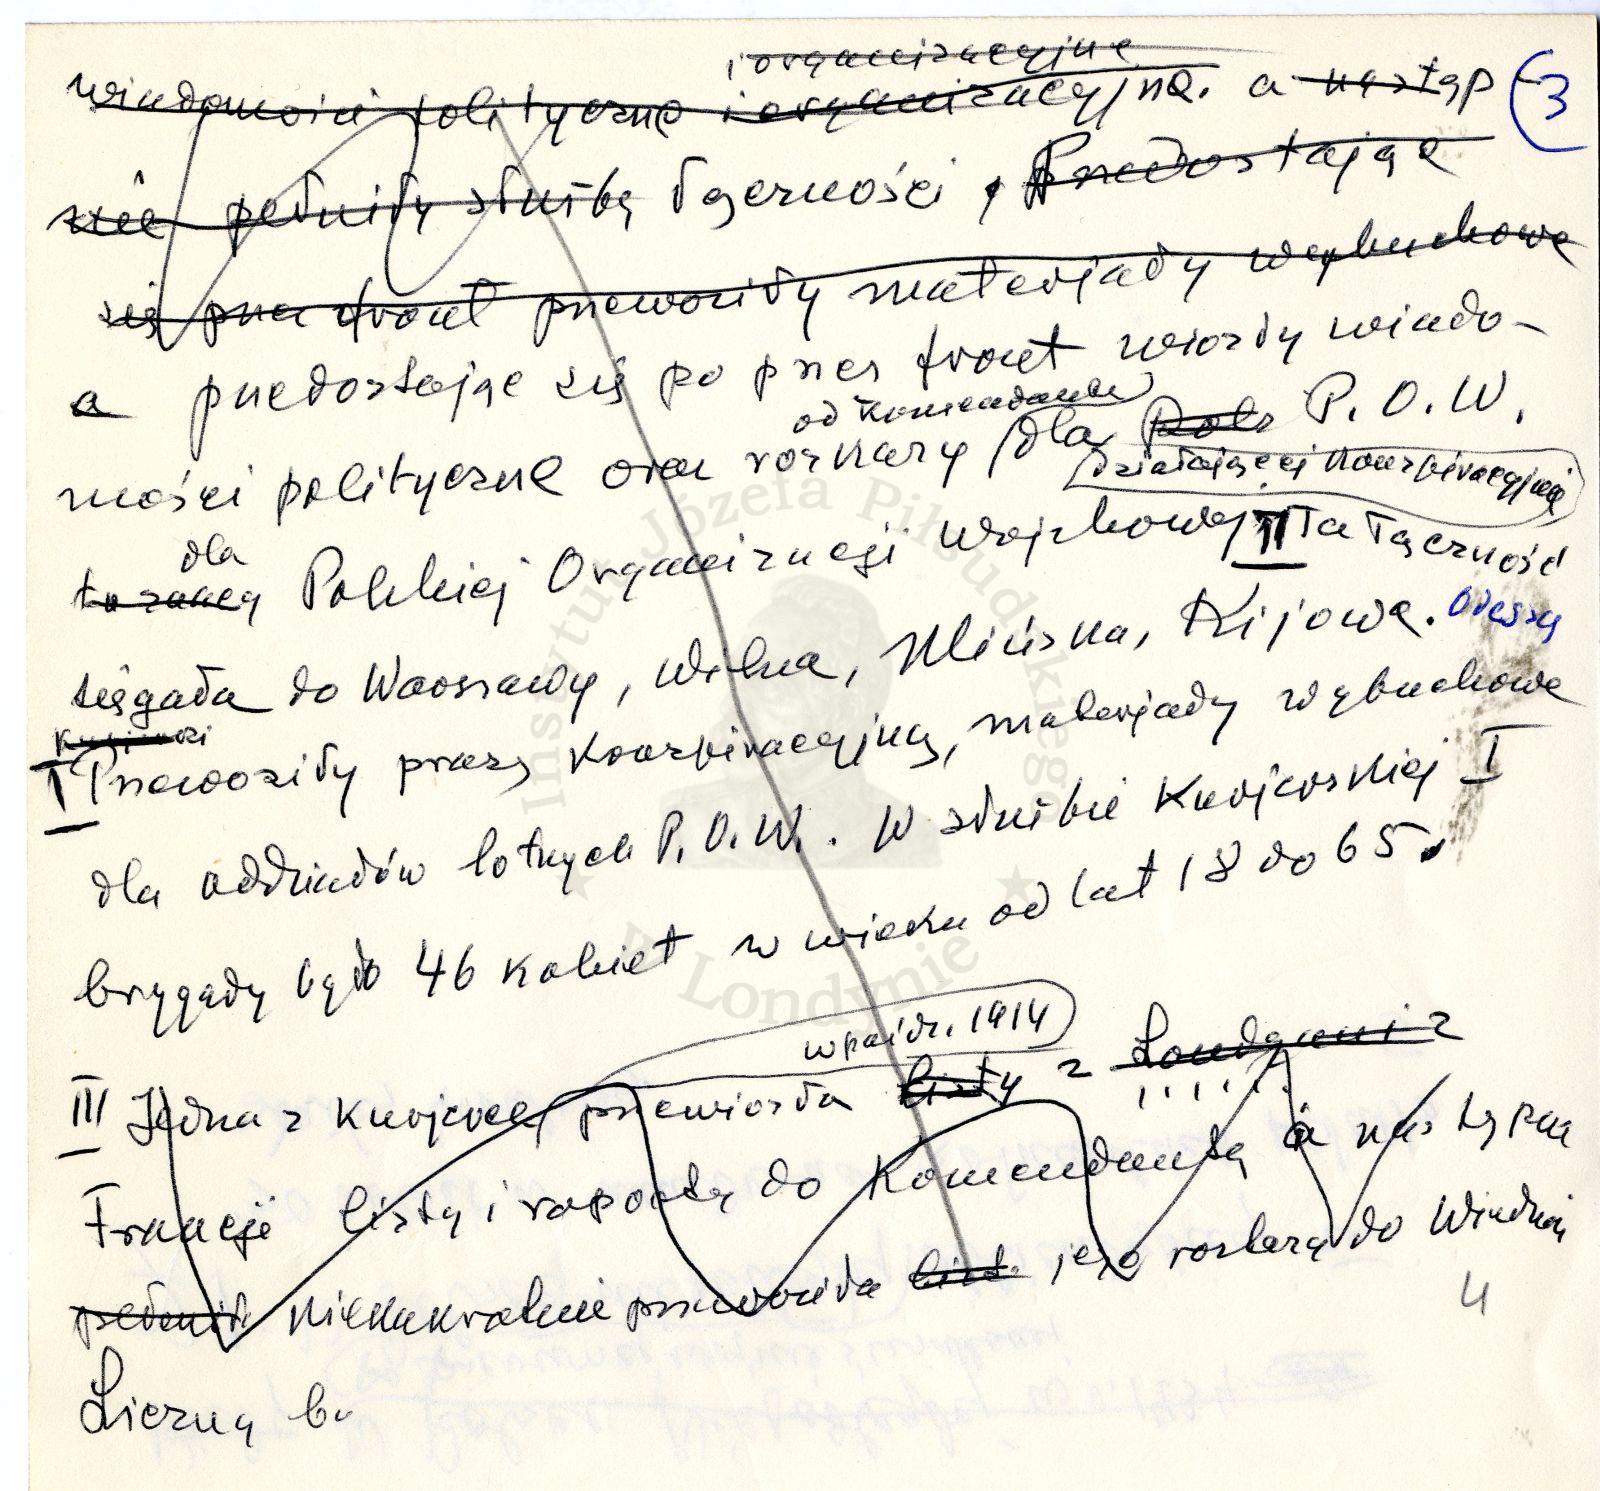 i organizacyjne
wiadomości polityczne i organizacyjne. a następ
3
nie pełniły służbę łączności, Przedostając
się przez front przewoziły materjały wybuchowe
a przedostając się po przez front wiozły wiado-
od Komendanta
mości polityczne oraz rozkazy dla P. O. W.
działającej konspiracyjnie
dla
Polskiej Organizacji Wojskowej II Ta łączność
sięgała do Warszawy, Wilna, Mińska, Kijowa. Odessy
I Przewoziły prasę konspiracyjną, materjały wybuchowe
dla oddziałów lotnych P. O. W. W służbie Kurjerskiej I
brygady było 46 kobiet w wieku od lat 18 do 65.
w paźdz. 1914
III Jedna z kurjerek przewiozła listy z Londynu i z
Francji listy i raporty do Komendanta a następnie
kilkakrotnie przewoziła list jego rozkazy do Wiednia
4
Liczną
Instytut Józefa Piłsudskiego
w Londynie